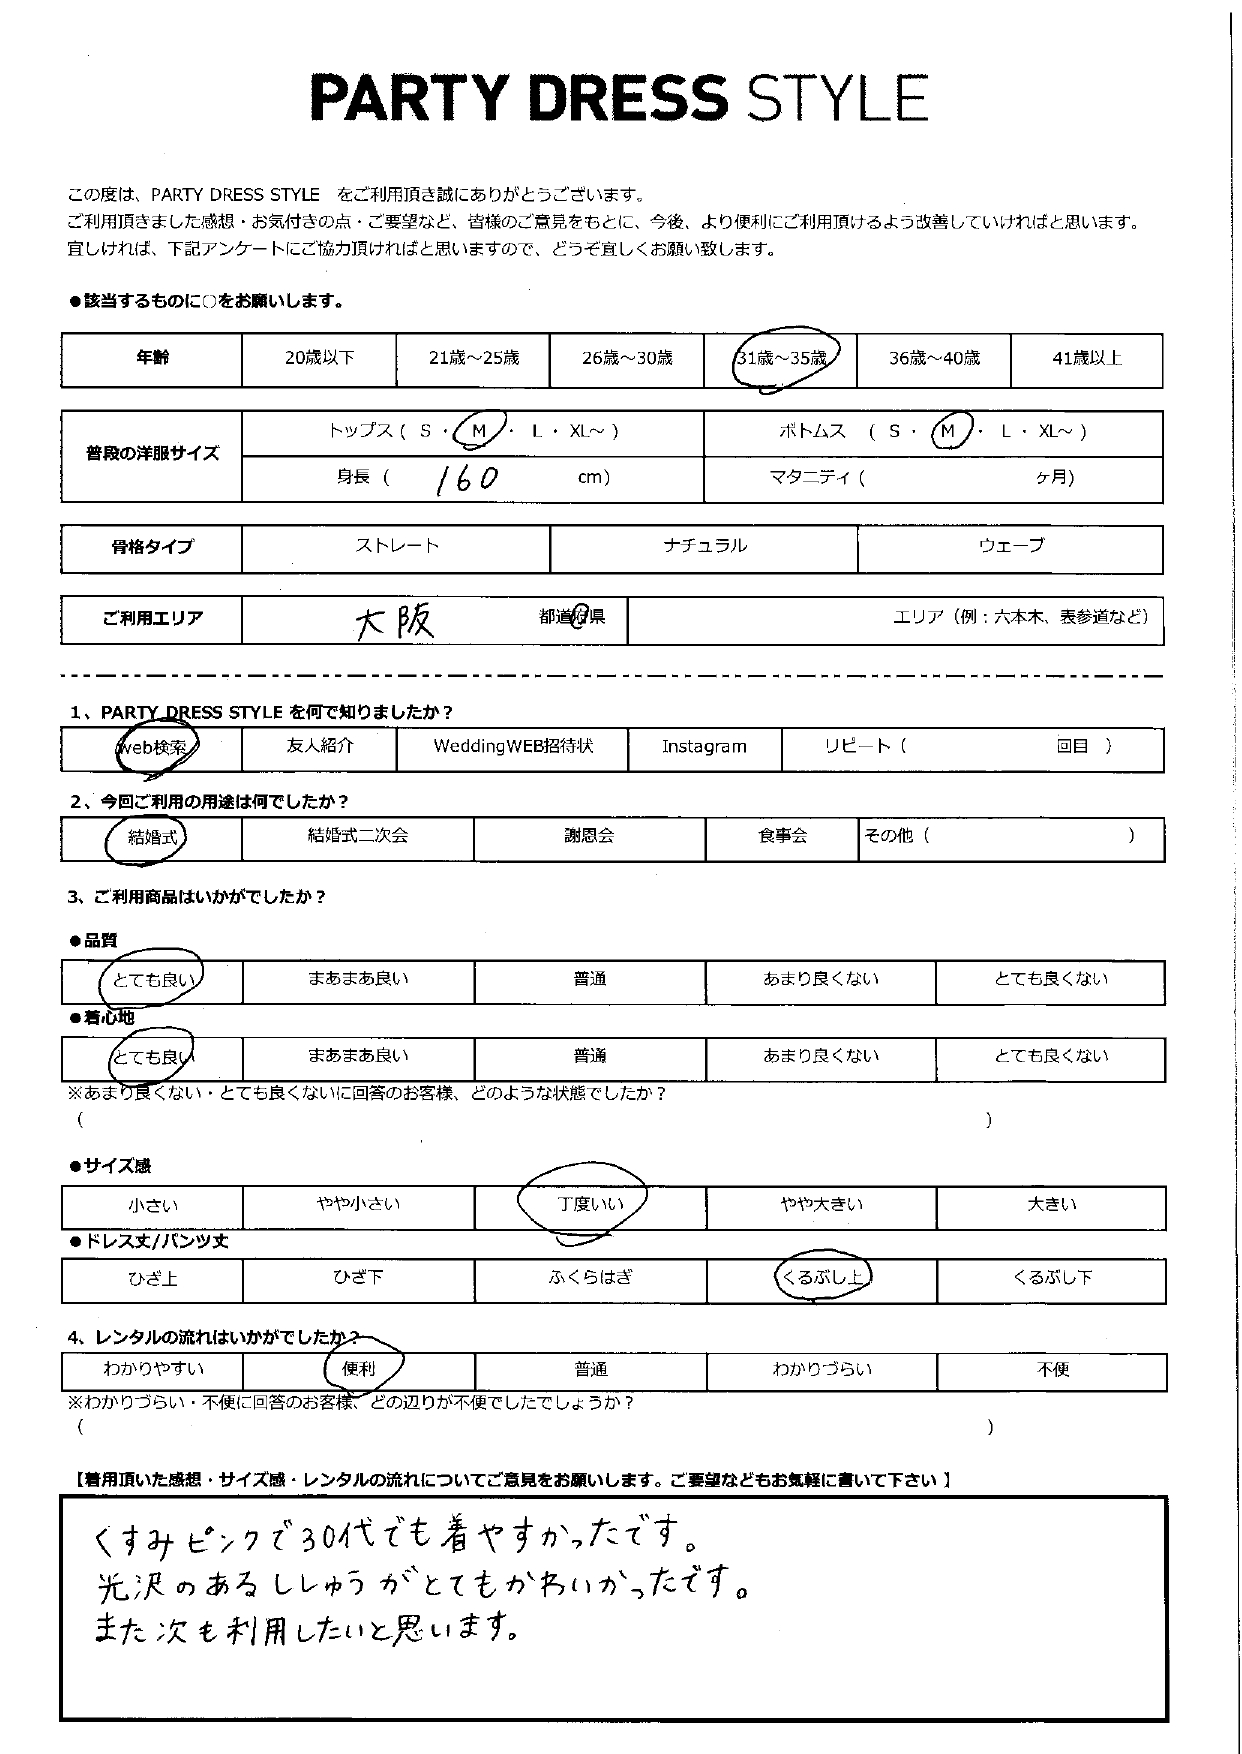 PARTY DRESS STYLE
この度は、PARTY DRESS STYLE　をご利用頂き誠にありがとうございます。
ご利用頂きました感想・お気付きの点・ご要望など、皆様のご意見をもとに、今後、より便利にご利用頂けるよう改善していければと思います。
宜しければ、下記アンケートにご協力頂ければと思いますので、どうぞ宜しくお願い致します。
●該当するものに○をお願いします。
年齢 20歳以下 21歳～25歳 26歳～30歳 31歳～35歳 36歳～40歳 41歳以上
普段の洋服サイズ
トップス（ S ・ M ・ L ・ XL～ ） ボトムス （ S ・ M ・ L ・ XL～ ）
身長（ 160 cm） マタニティ（ ヶ月）
骨格タイプ ストレート ナチュラル ウェーブ
ご利用エリア 大阪 都道府県 エリア（例：六本木、表参道など）
1、PARTY DRESS STYLE を何で知りましたか？
web検索 友人紹介 WeddingWEB招待状 Instagram リピート（ 回目 ）
2、今回ご利用の用途は何でしたか？
結婚式 結婚式二次会 謝恩会 食事会 その他（ ）
3、ご利用商品はいかがでしたか？
●品質
とても良い まあまあ良い 普通 あまり良くない とても良くない
●着心地
とても良い まあまあ良い 普通 あまり良くない とても良くない
※あまり良くない・とても良くないに回答のお客様、どのような状態でしたか？
（ ）
●サイズ感
小さい やや小さい 丁度いい やや大きい 大きい
●ドレス丈/パンツ丈
ひざ上 ひざ下 ふくらはぎ くるぶし上 くるぶし下
4、レンタルの流れはいかがでしたか？
わかりやすい 便利 普通 わかりづらい 不便
※わかりづらい・不便に回答のお客様、どの辺りが不便でしたでしょうか？
（ ）
【着用頂いた感想・サイズ感・レンタルの流れについてご意見をお願いします。ご要望などもお気軽に書いて下さい 】
くすみピンクで30代でも着やすかったです。
光沢のあるししゅうがとてもかわいかったです。
また次も利用したいと思います。